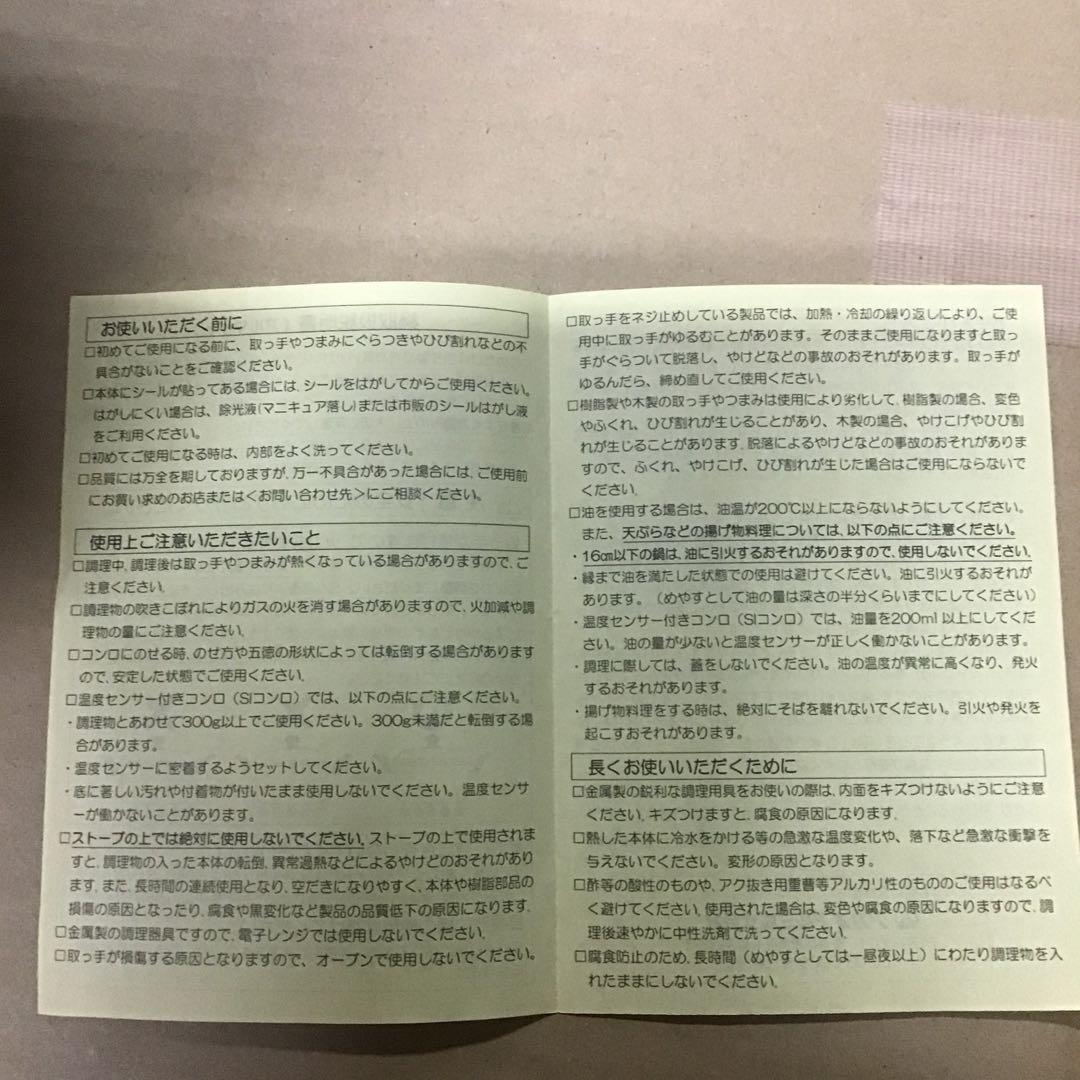 お使いいただく前に
□初めてご使用になる前に、取っ手やつまみにぐらつきやひび割れなどの不
具合がないことをご確認ください。
□本体にシールが貼ってある場合には、シールをはがしてからご使用ください。
はがしにくい場合は、除光液(マニキュア落し)または市販のシールはがし液
をご利用ください。
□初めてご使用になる時は、内部をよく洗ってください。
□品質には万全を期しておりますが、万一不具合があった場合には、ご使用前
にお買い求めのお店または<お問い合わせ先>にご相談ください。
使用上ご注意いただきたいこと
□調理中、調理後は取っ手やつまみが熱くなっている場合がありますので、ご
注意ください。
□調理物の吹きこぼれによりガスの火を消す場合がありますので、火加減や調
理物の量にご注意ください。
□コンロにのせる時、のせ方や五徳の形状によっては転倒する場合があります
ので、安定した状態でご使用ください。
□温度センサー付きコンロ（SIコンロ）では、以下の点にご注意ください。
・調理物とあわせて300g以上でご使用ください。300g未満だと転倒する場
合があります。
・温度センサーに密着するようセットしてください。
・底に著しい汚れや付着物が付いたまま使用しないでください。温度センサ
ーが働かないことがあります。
□ストーブの上では絶対に使用しないでください。ストーブの上で使用されま
すと、調理物の入った本体の転倒、異常過熱などによるやけどのおそれがあり
ます。また、長時間の連続使用となり、空だきになりやすく、本体や樹脂部品の
損傷の原因となったり、腐食や黒変化など製品の品質低下の原因になります。
□金属製の調理器具ですので、電子レンジでは使用しないでください。
□取っ手が損傷する原因となりますので、オーブンで使用しないでください。
□取っ手をネジ止めしている製品では、加熱・冷却の繰り返しにより、ご使
用中に取っ手がゆるむことがあります。そのままご使用になりますと取っ
手がぐらついて脱落し、やけどなどの事故のおそれがあります。取っ手が
ゆるんだら、締め直してご使用ください。
□樹脂製や木製の取っ手やつまみは使用により劣化して、樹脂製の場合、変色
やふくれ、ひび割れが生じることがあり、木製の場合、やけこげやひび割
れが生じることがあります。脱落によるやけどなどの事故のおそれがありま
すので、ふくれ、やけこげ、ひび割れが生じた場合はご使用にならないで
ください。
□油を使用する場合は、油温が200℃以上にならないようにしてください。
また、天ぷらなどの揚げ物料理については、以下の点にご注意ください。
・16㎝以下の鍋は、油に引火するおそれがありますので、使用しないでください。
・縁まで油を満たした状態での使用は避けてください。油に引火するおそれが
あります。（めやすとして油の量は深さの半分くらいまでにしてください）
・温度センサー付きコンロ（SIコンロ）では、油量を200ml以上にしてくだ
さい。油の量が少ないと温度センサーが正しく働かないことがあります。
・調理に際しては、蓋をしないでください。油の温度が異常に高くなり、発火
するおそれがあります。
・揚げ物料理をする時は、絶対にそばを離れないでください。引火や発火を
起こすおそれがあります。
長くお使いいただくために
□金属製の鋭利な調理用具をお使いの際は、内面をキズつけないようにご注意
ください。キズつけますと、腐食の原因になります。
□熱した本体に冷水をかける等の急激な温度変化や、落下など急激な衝撃を
与えないでください。変形の原因となります。
□酢等の酸性のものや、アク抜き用重曹等アルカリ性のもののご使用はなるべ
く避けてください。使用された場合は、変色や腐食の原因になりますので、調
理後速やかに中性洗剤で洗ってください。
□腐食防止のため、長時間（めやすとしては一昼夜以上）にわたり調理物を入
れたままにしないでください。